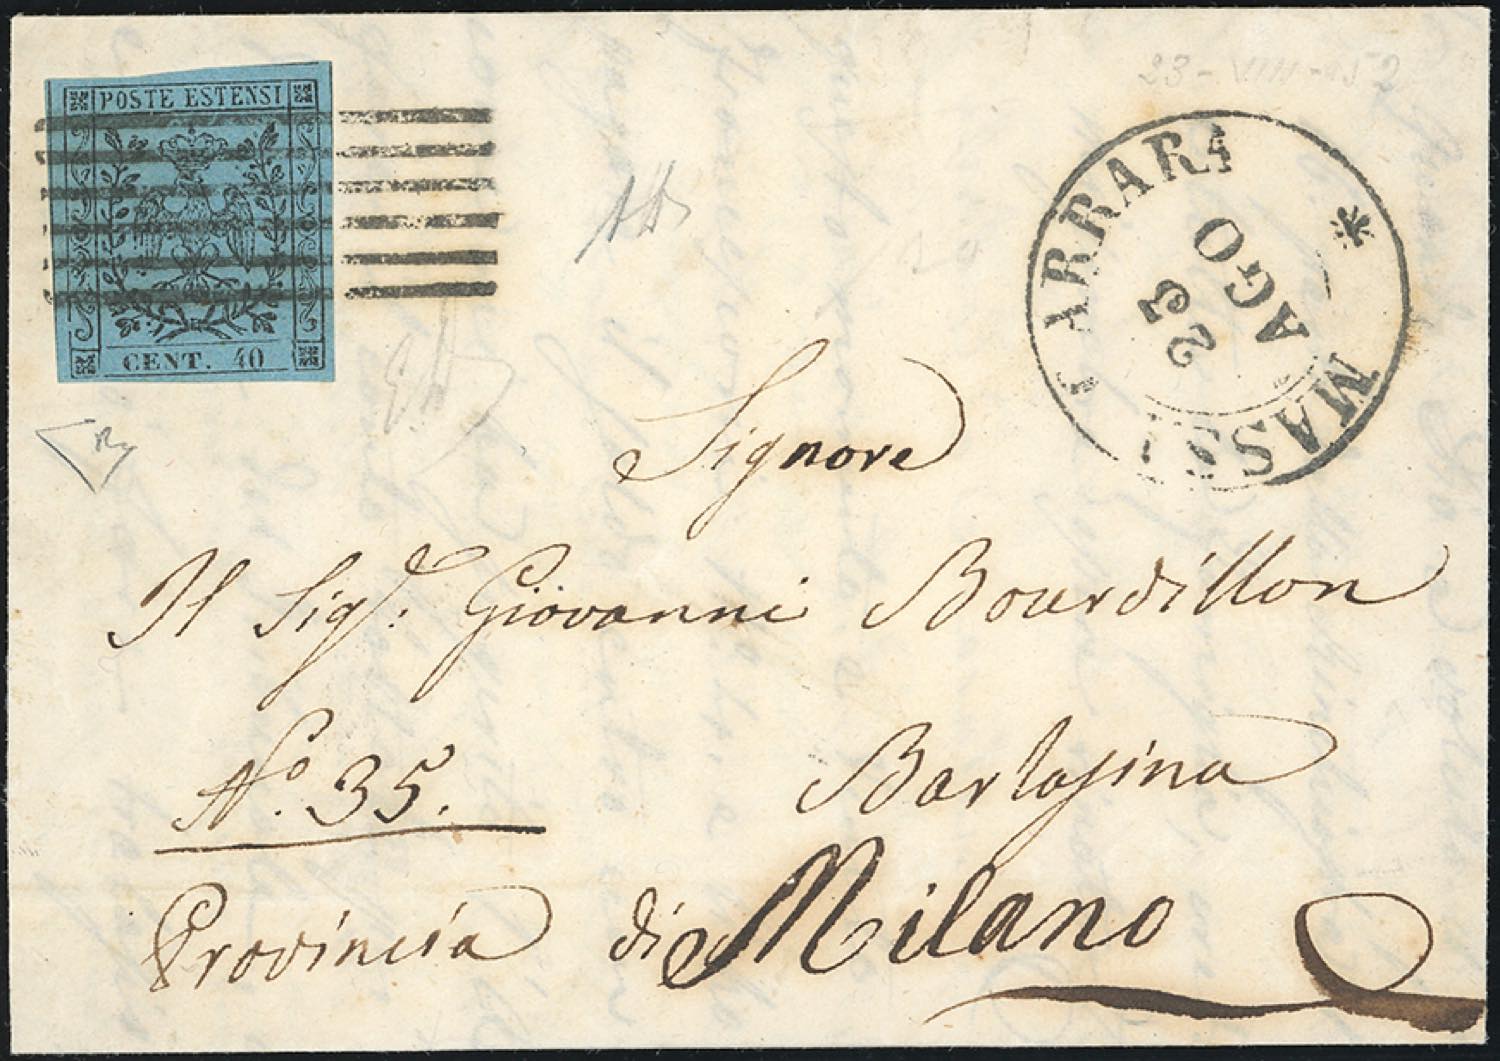 POSTE ESTENSI
CENT. 40
23 - VIII - 52
MASSA CARRARA
23
AGO
Signore
Il Sigr. Giovanni Bourdillon
No. 35. Barlasina
Provincia di Milano